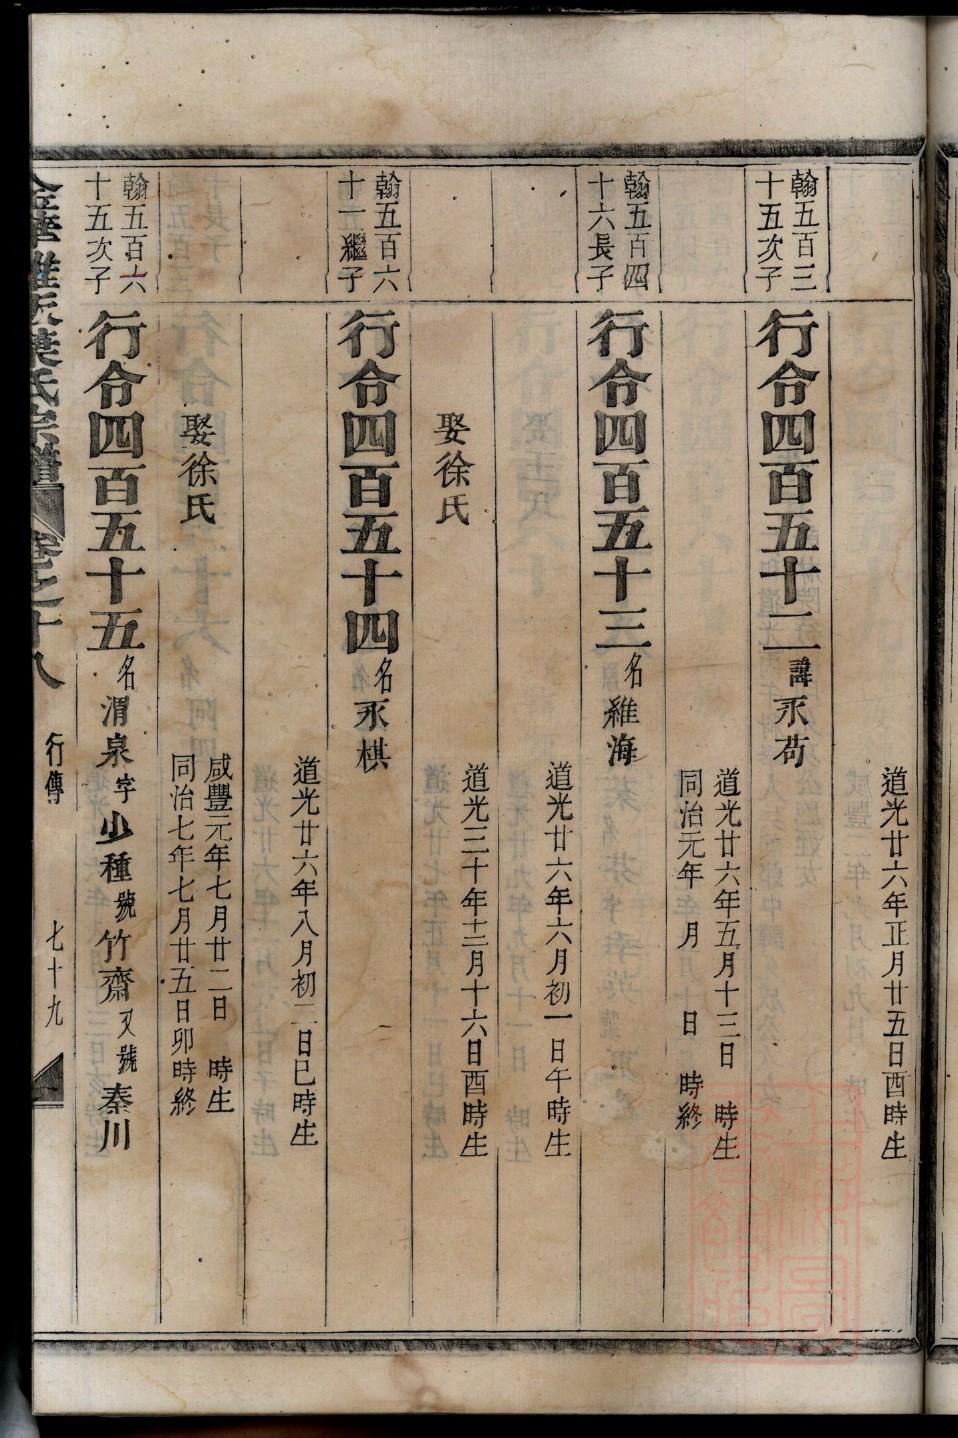 道光廿六年正月廿五日酉時生
翰五百三
十五次子
行令四百五十二諱永苟
道光廿六年五月十三日　時生
同治元年　年　月　日　時終
翰五百四
十六長子
行令四百五十三名維海
道光廿六年六月初一日午時生
娶徐氏
道光三十年十二月十六日酉時生
翰五百六
十一繼子
行令四百五十四名永棋
道光廿六年八月初二日巳時生
娶徐氏
咸豐元年七月廿二日　時生
同治七年七月廿五日卯時終
翰五百六
十五次子
行令四百五十五名渭泉字少種號竹齋又號秦川
葉氏宗譜　卷之十八　行傳　七十九